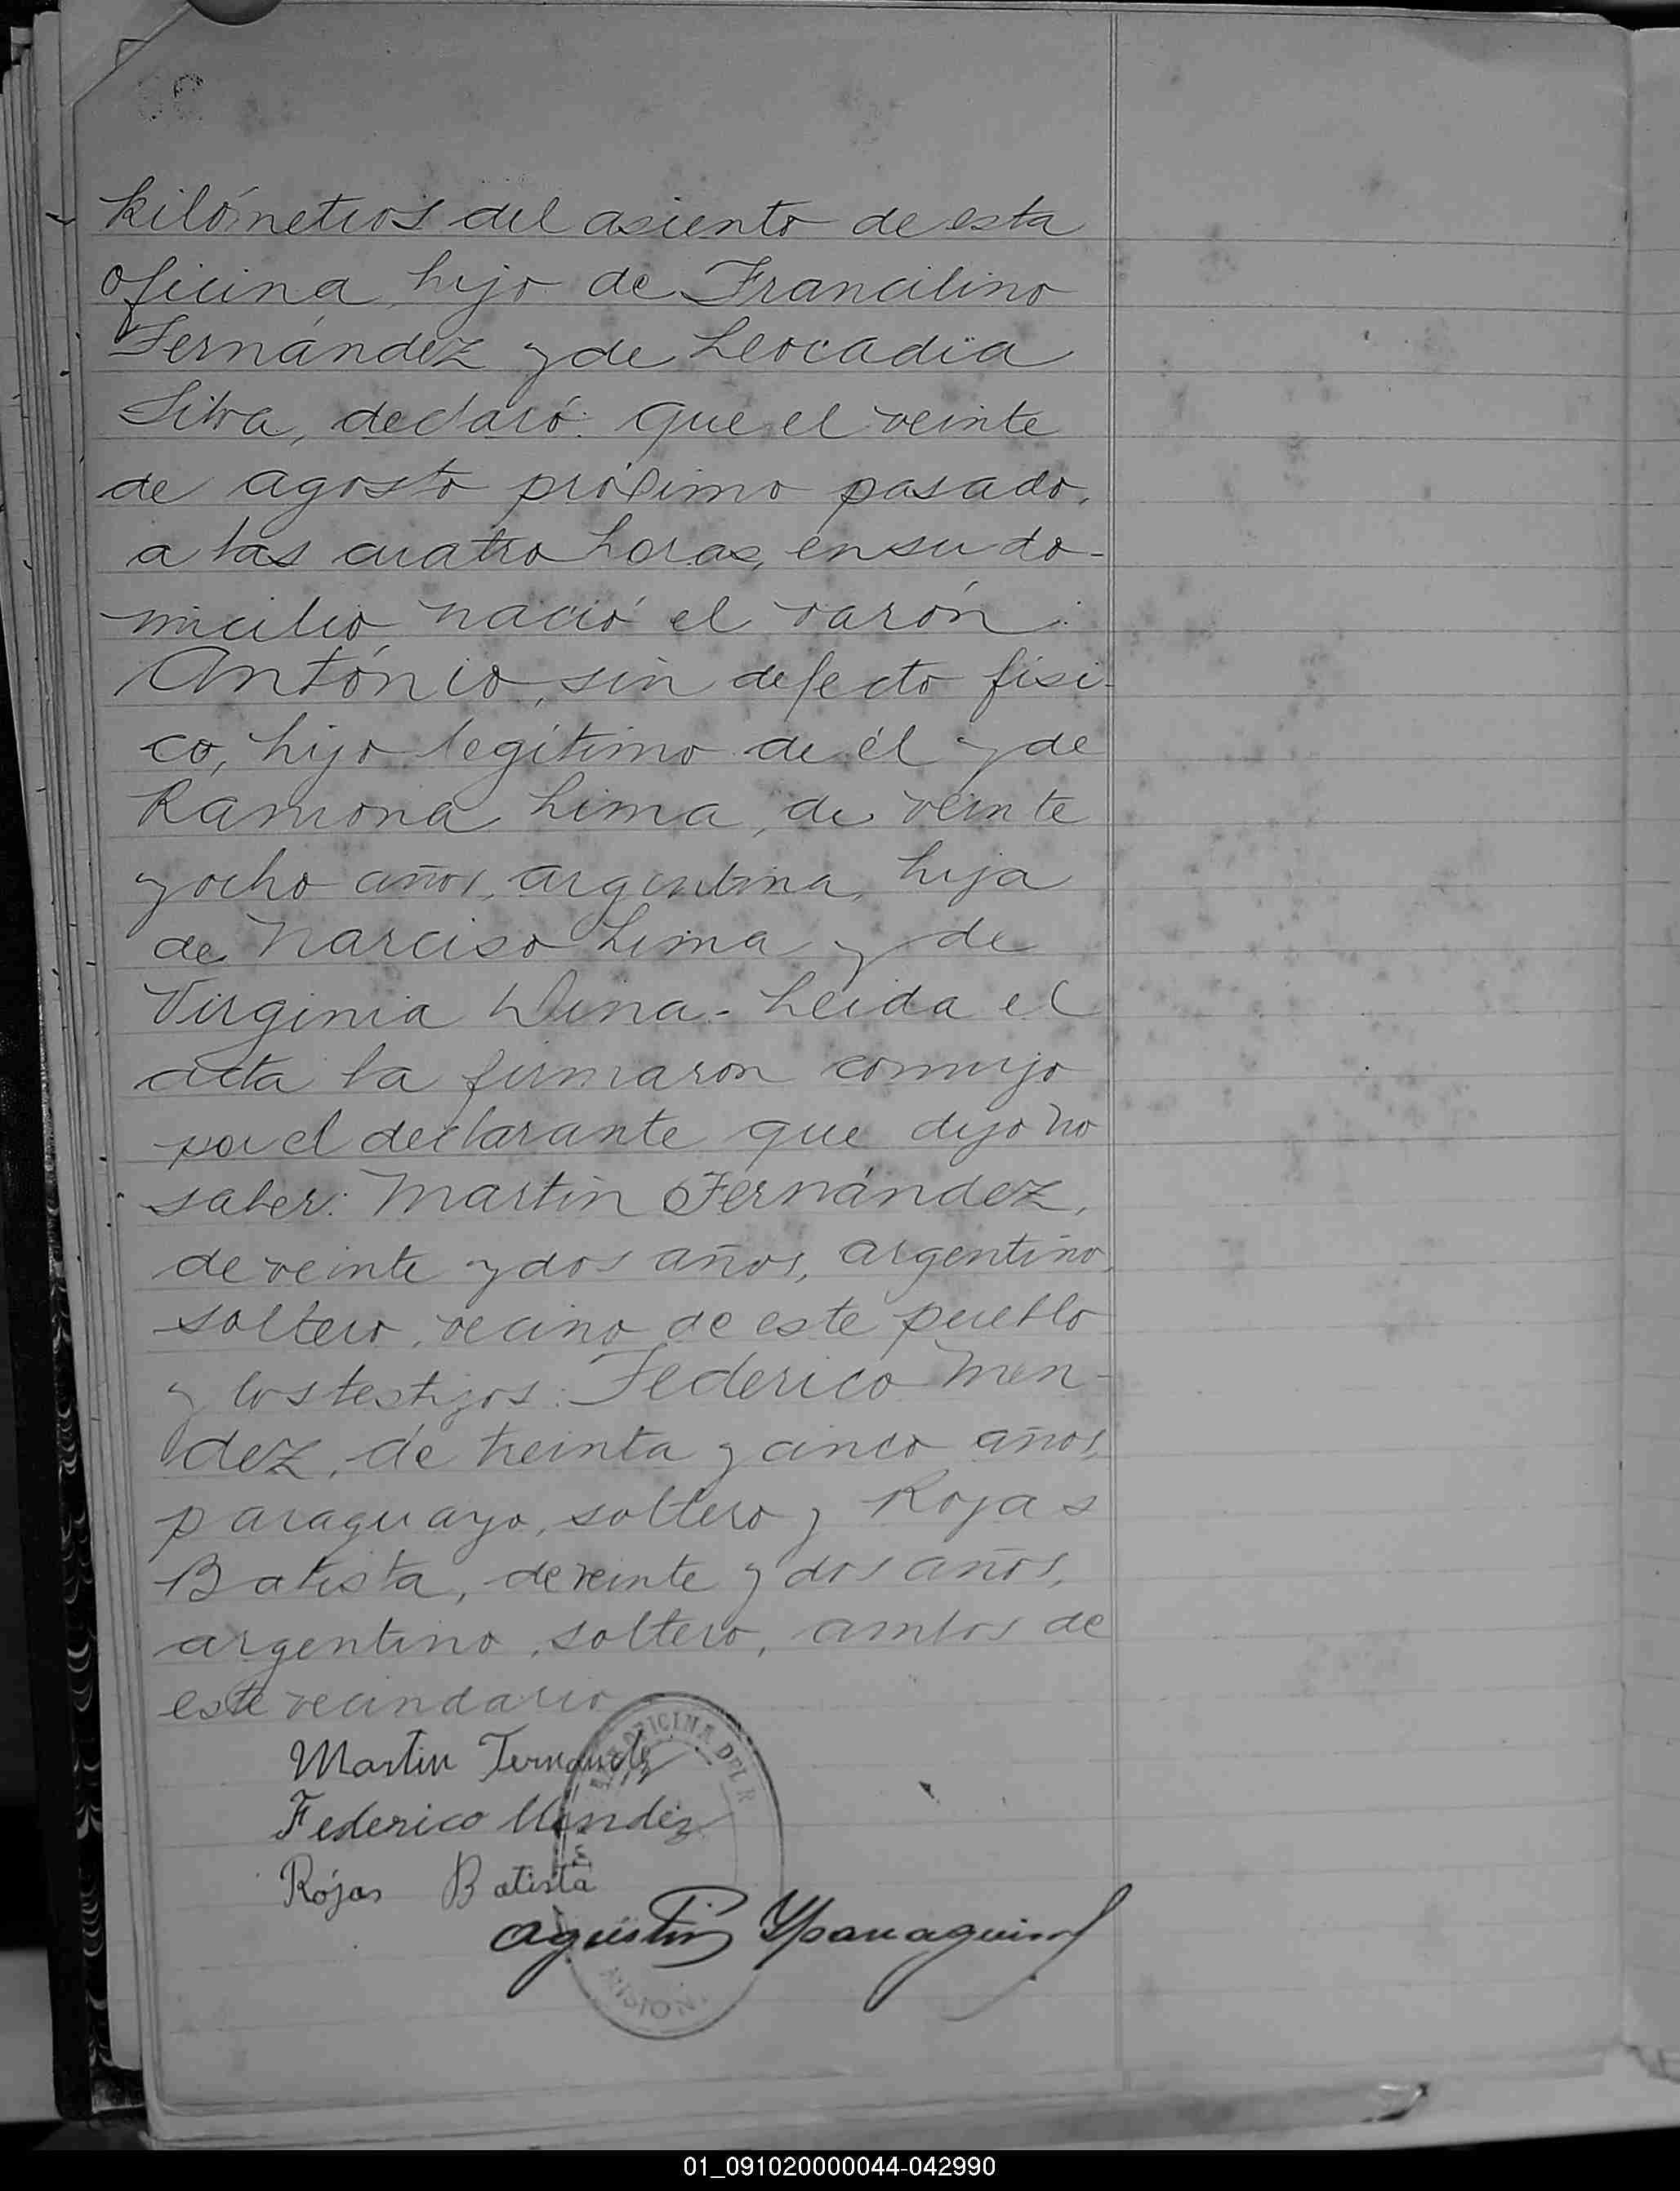 kilómetros del asiento de esta
oficina, hijo de Francilino
Fernández y de Leocadia
Silva, declaró: Que el veinte
de agosto próximo pasado,
a las cuatro horas, en su do-
micilio nació el varón:
António, sin defecto físi-
co, hijo legítimo de él y de
Ramona Lima, de veinte
y ocho años, argentina, hija
de Narciso Lima y de
Virginia Dina.- Leida el
acta la firmaron conmigo
por el declarante que dijo no
saber: Martín Fernández,
de veinte y dos años, argentino,
soltero, vecino de este pueblo
y los testigos: Federico Men-
dez, de treinta y cinco años,
paraguayo, soltero y Rojas
Batista, de veinte y dos años,
argentino, soltero, ambos de
este vecindario
Martin Fernandez
Federico Mendez
Rójas Batista
OFICINA DEL R
Agustin
MISION
01_091020000044-042990